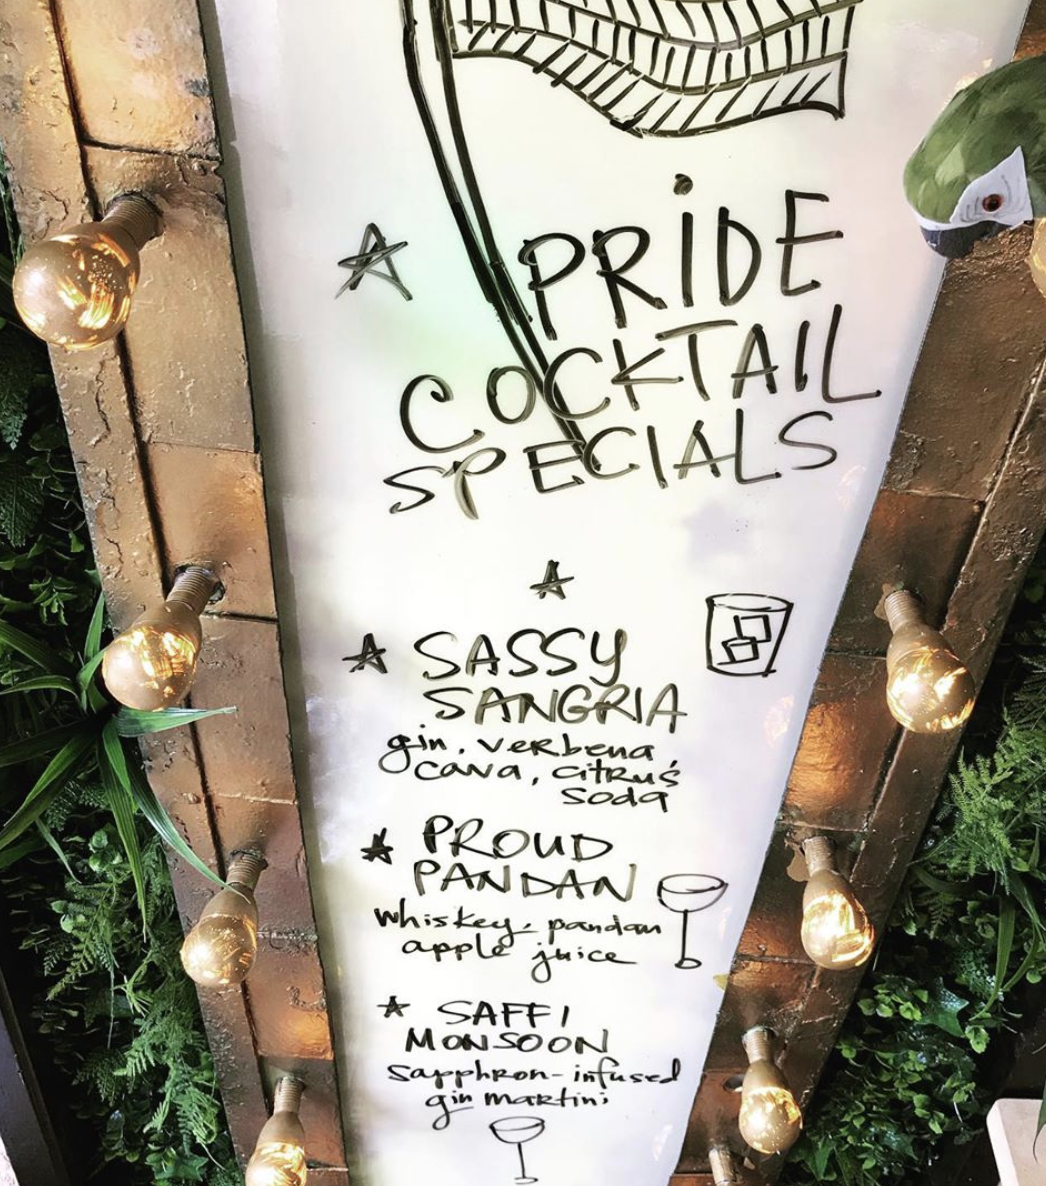 PRiDE
COCKTAIL
SPECIALS
SASSY
SANGRIA
gin, verbena
cava, citrus
soda
PROUD
PANDAN
whiskey, pandan
apple juice
SAFFI
MONSOON
sapphron-infused
gin martini